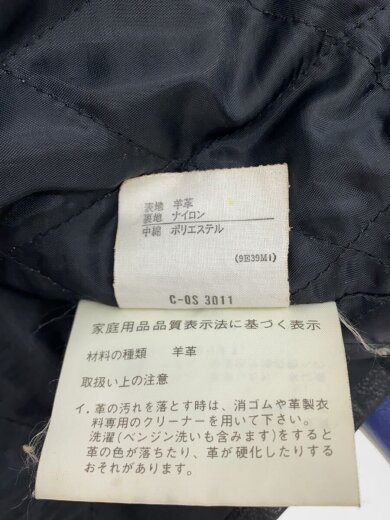 表地 羊革
裏地 ナイロン
中綿 ポリエステル
(9E39M1)
C-OS 3011
家庭用品品質表示法に基づく表示
材料の種類 羊革
取扱い上の注意
イ.革の汚れを落とす時は、消ゴムや革製衣
料専用のクリーナーを用いて下さい。
洗濯(ベンジン洗いも含みます)をすると
革の色が落ちたり、革が硬化したりする
おそれがあります。